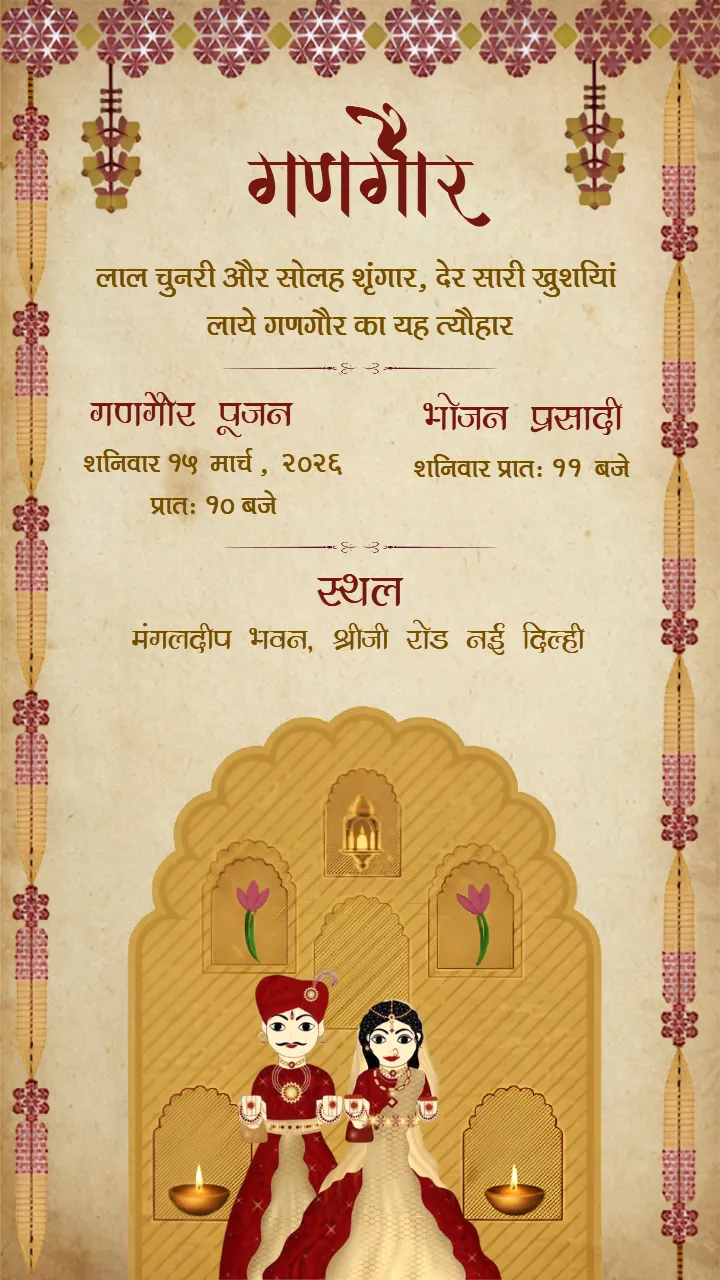 गणगौर
लाल चुनरी और सोलह श्रृंगार, देर सारी खुशयिां
लाये गणगौर का यह त्यौहार
गणगौर पूजन
शनिवार १५ मार्च , २०२६
प्रातः १० बजे
भोजन प्रसादी
शनिवार प्रातः ११ बजे
स्थल
मंगलदीप भवन, श्रीजी रोड नई दिल्ही